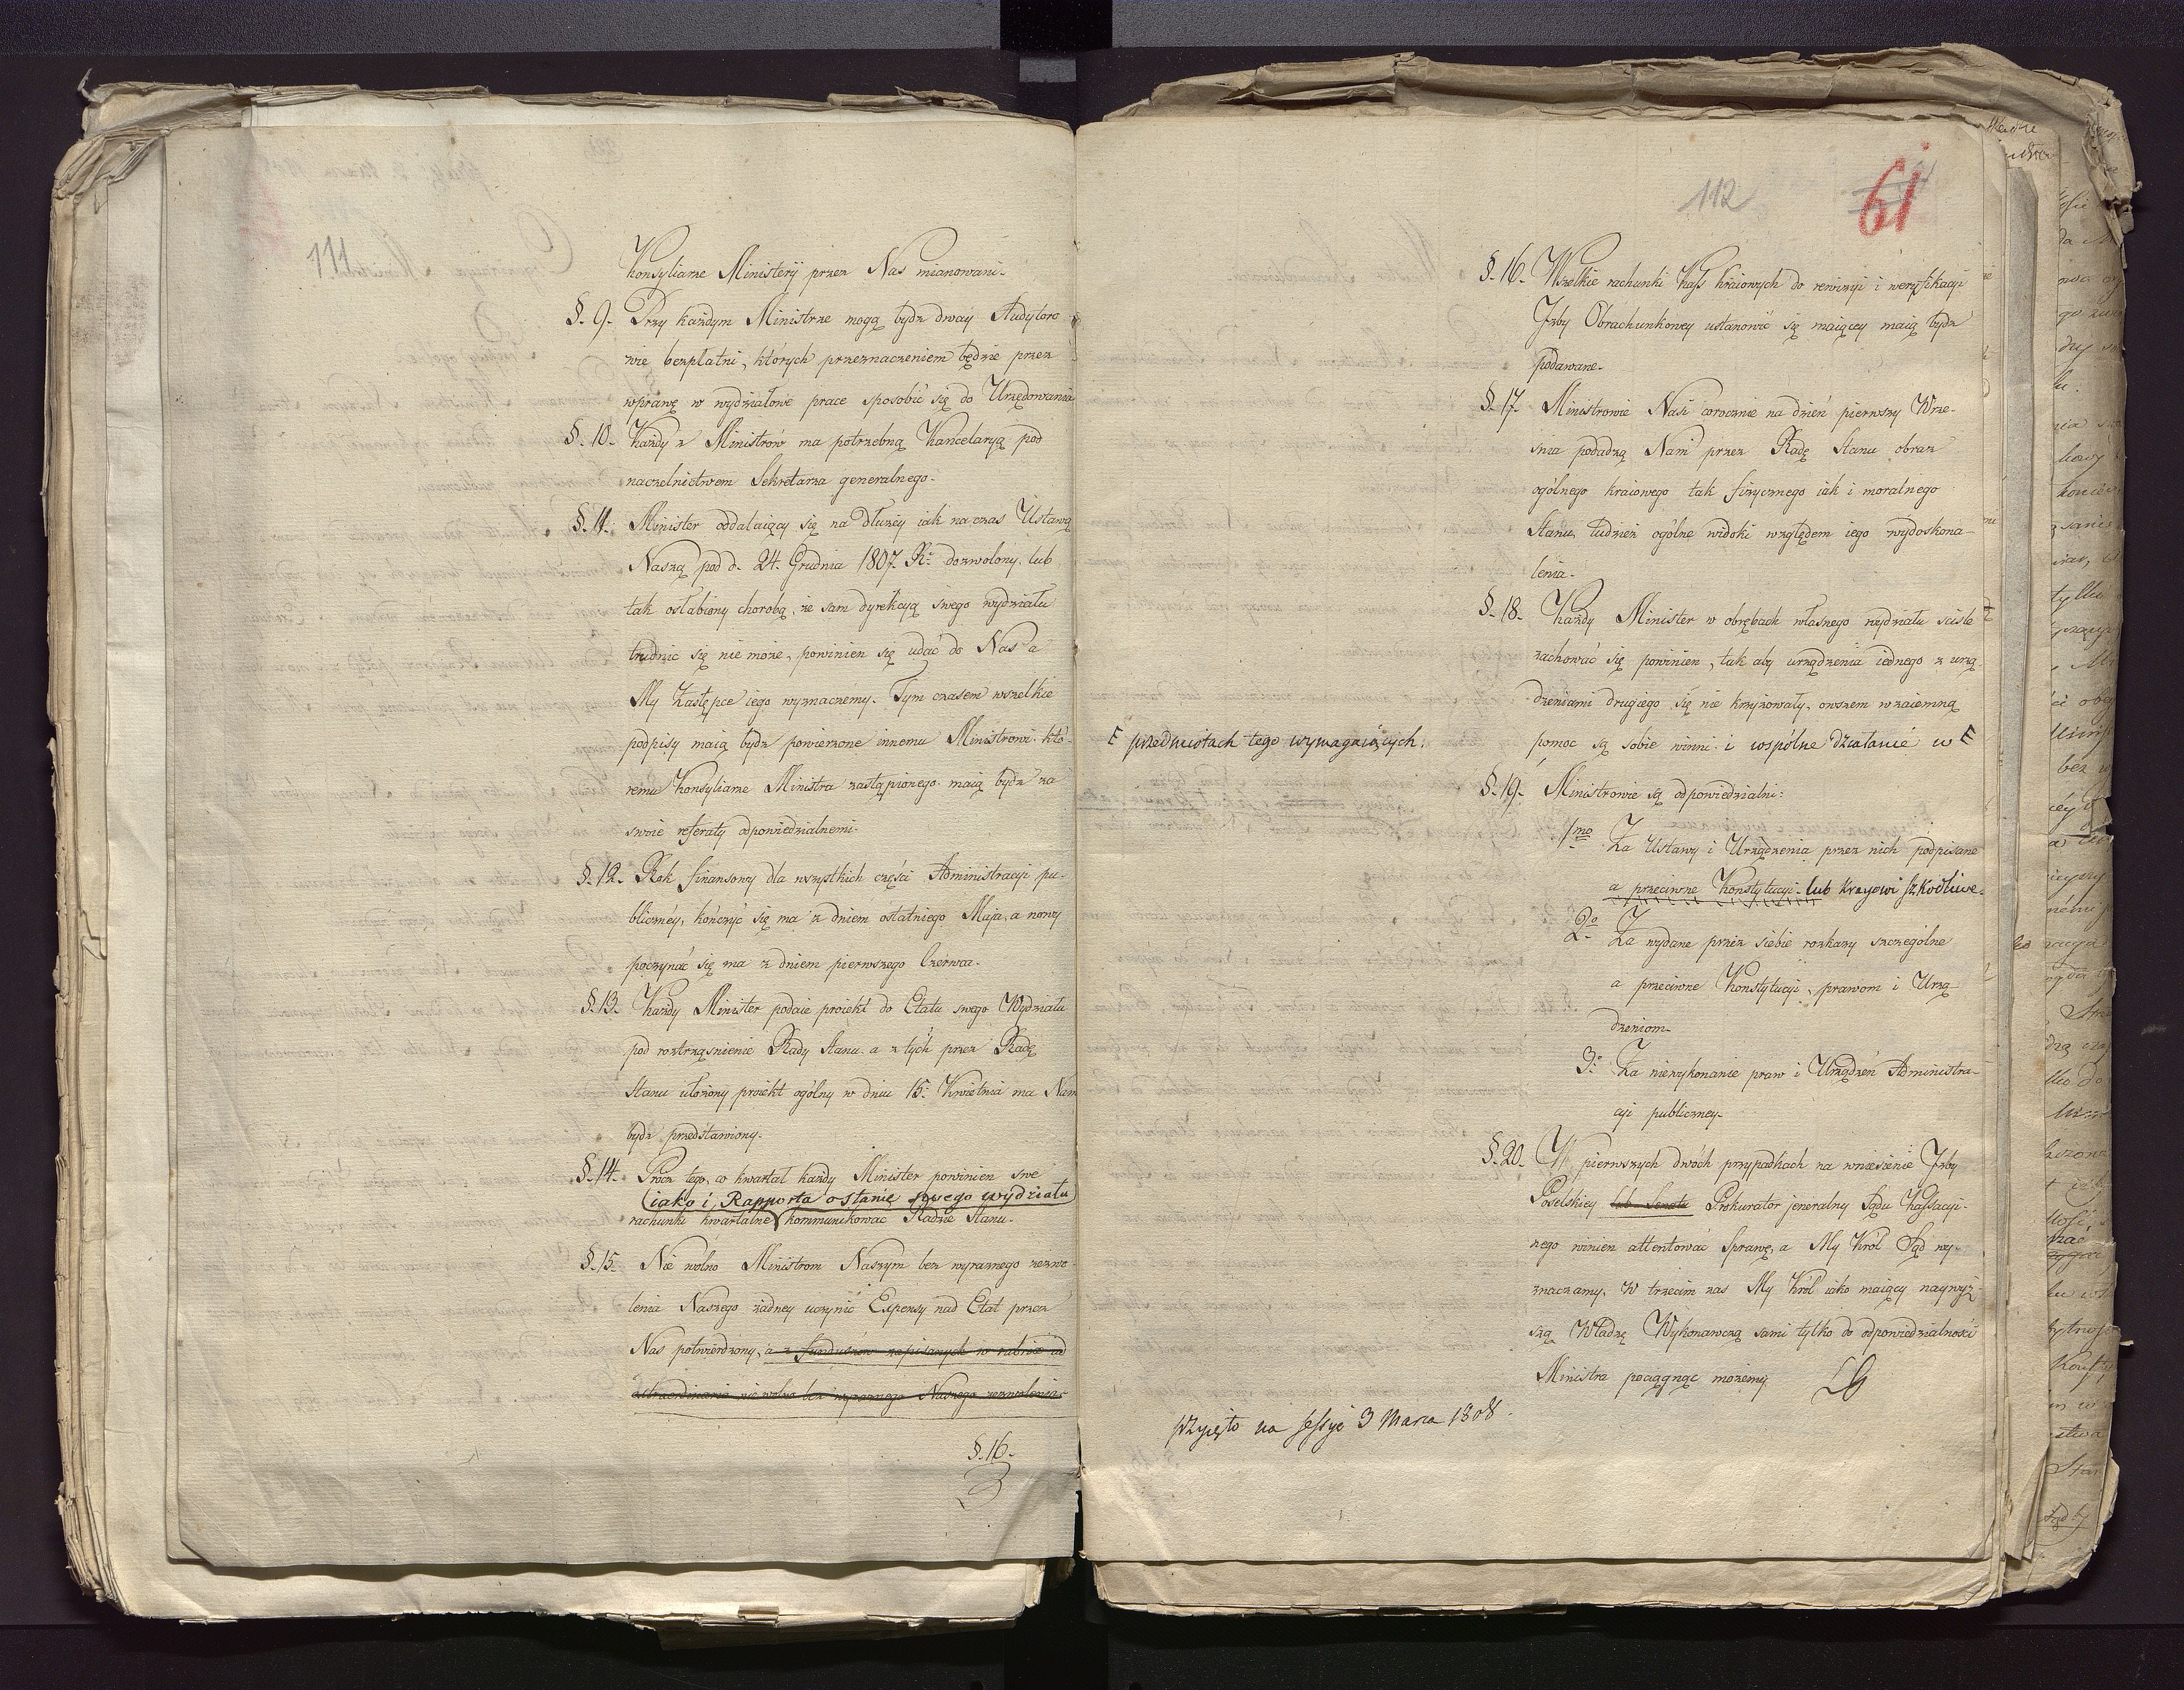 111
Konsyliarze Ministeryi przez Nas mianowani.
§. 9. Przy każdym Ministrze mogą bydź dway Audytoro
wie bezpłatni, których przeznaczeniem będzie przez
wprawę w wydziałowe prace sposobić się do Urzędowania
§. 10. Każdy z Ministrow ma potrzebną Kancelaryą pod
naczelnictwem Sekretarza generalnego.
§. 11. Minister oddalaiący się na dłużey iak na czas Ustawą
Naszą pod d. 24. Grudnia 1807. Rº dozwolony, lub
tak osłabiony chorobą, że sam dyrekcyą swego wydziału
trudnic się nie może, powinien się udać do Nas a
My Zastępce iego wyznaczemy. Tym czasem wszelkie
podpisy maią bydź powierzone innemu Ministrowi, któ-
remu Konsyliarze Ministra zastąpionego maią bydź za
swoie referaty odpowiedzialnemi.
§. 12. Rok finansowy dla wszystkich części Administracyi pu-
bliczney, kończyć się ma z dniem ostatniego Maja, a nowy
poczynać się ma z dniem pierwszego Czerwca.
§. 13. Każdy Minister podaie proiekt do Etatu swego Wydziału
pod roztrząsnienie Rady Stanu, a z tych przez Radę
Stanu ułożony proiekt ogólny w dniu 15. Kwietnia ma Nam
bydź przedstawiony.
§. 14. Procz tego, co kwartał każdy Minister powinien swe
(iako i, Rapporta o stanie swego wydziału)
rachunki kwartalne kommunikować Radzie Stanu.
§. 15. Nie wolno Ministrom Naszym bez wyraznego zezwo
lenia Naszego żadney uczynić Expensy nad Etat przez
Nas potwierdzony, a z funduszow zapisanych w rubrice ad
extraordinaria nie wolno bez wyraznego Naszego zezwolenia.
§. 16.
112
61
§. 16. Wszelkie rachunki Kass kraiowych do rewizyi i weryfikacyi
Izby Obrachunkowey ustanowić się maiącey maią bydź
podawane.
§. 17. Ministrowie Nasi corocznie na dzień pierwszy Wrze-
snia podadzą Nam przez Radę Stanu obraz
ogólnego kraiowego tak fizycznego iak i moralnego
Stanu, tudzież ogólne widoki względem iego wydoskona-
lenia.
§. 18. Każdy Minister w obrębach własnego wydziału scisle
zachować się powinien, tak aby urządzenia iednego z urzą
dzeniami drugiego się nie krzyżowały, owszem wzaiemną
pomoc są sobie winni i wspólne działanie w F
F przedmiotach tego wymagaiących.
§. 19. Ministrowie są odpowiedzialni:
1mo Za Ustawy i Urządzenia przez nich podpisane
a przeciwne Konstytucyi - lub Krajowi szkodliwe.
2º Za wydane przez siebie rozkazy szczególne
a przeciwne Konstytucyi, prawom i Urzą
dzeniom.
3º Za niewykonanie praw i Urządzeń Administra-
cyi publiczney.
§. 20. W pierwszych dwóch przypadkach na wniesienie Izby
Poselskiey lub Senatu Prokurator jeneralny Sądu Kassacyi-
nego winien attentować Sprawę, a My Król Sąd wy-
znaczamy. W trzecim zas My Król iako maiący naywyż
szą Władzę Wykonawczą sami tylko do odpowiedzialności
Ministra pociągnąć możemy.
przyięto na sessyi 3 Marca 1808.